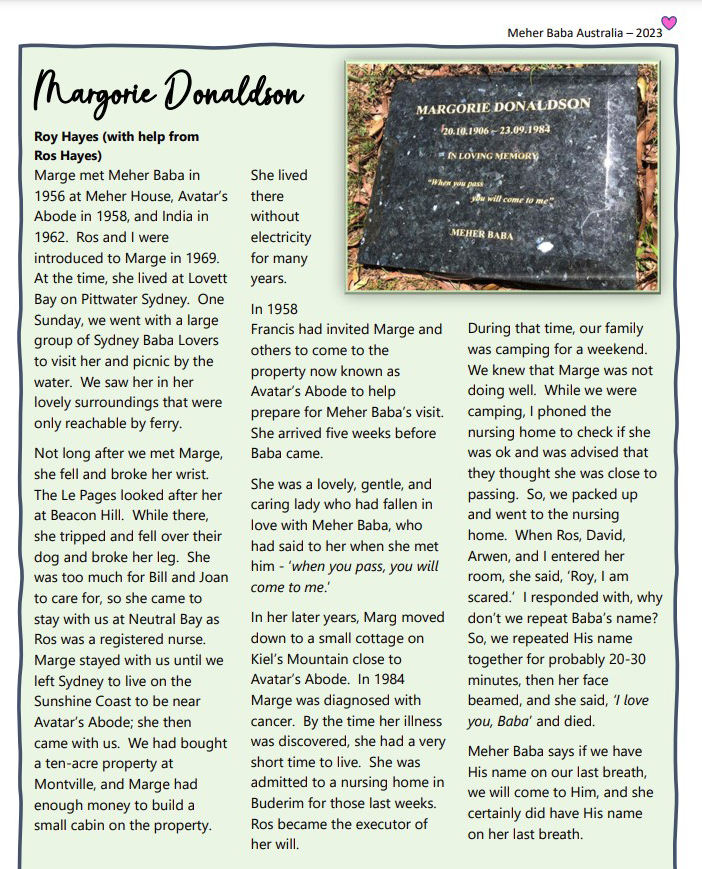 Meher Baba Australia – 2023
Margorie Donaldson
Roy Hayes (with help from
Ros Hayes)
Marge met Meher Baba in
1956 at Meher House, Avatar’s
Abode in 1958, and India in
1962.  Ros and I were
introduced to Marge in 1969.
At the time, she lived at Lovett
Bay on Pittwater Sydney.  One
Sunday, we went with a large
group of Sydney Baba Lovers
to visit her and picnic by the
water.  We saw her in her
lovely surroundings that were
only reachable by ferry.
Not long after we met Marge,
she fell and broke her wrist.
The Le Pages looked after her
at Beacon Hill.  While there,
she tripped and fell over their
dog and broke her leg.  She
was too much for Bill and Joan
to care for, so she came to
stay with us at Neutral Bay as
Ros was a registered nurse.
Marge stayed with us until we
left Sydney to live on the
Sunshine Coast to be near
Avatar’s Abode; she then
came with us.  We had bought
a ten-acre property at
Montville, and Marge had
enough money to build a
small cabin on the property.
She lived
there
without
electricity
for many
years.
In 1958
Francis had invited Marge and
others to come to the
property now known as
Avatar’s Abode to help
prepare for Meher Baba’s visit.
She arrived five weeks before
Baba came.
She was a lovely, gentle, and
caring lady who had fallen in
love with Meher Baba, who
had said to her when she met
him - ‘when you pass, you will
come to me.’
In her later years, Marg moved
down to a small cottage on
Kiel’s Mountain close to
Avatar’s Abode.  In 1984
Marge was diagnosed with
cancer.  By the time her illness
was discovered, she had a very
short time to live.  She was
admitted to a nursing home in
Buderim for those last weeks.
Ros became the executor of
her will.
MARGORIE DONALDSON
20.10.1906 – 23.09.1984
IN LOVING MEMORY
“When you pass
you will come to me”
MEHER BABA
During that time, our family
was camping for a weekend.
We knew that Marge was not
doing well.  While we were
camping, I phoned the
nursing home to check if she
was ok and was advised that
they thought she was close to
passing.  So, we packed up
and went to the nursing
home.  When Ros, David,
Arwen, and I entered her
room, she said, ‘Roy, I am
scared.’  I responded with, why
don’t we repeat Baba’s name?
So, we repeated His name
together for probably 20-30
minutes, then her face
beamed, and she said, ‘I love
you, Baba’ and died.
Meher Baba says if we have
His name on our last breath,
we will come to Him, and she
certainly did have His name
on her last breath.